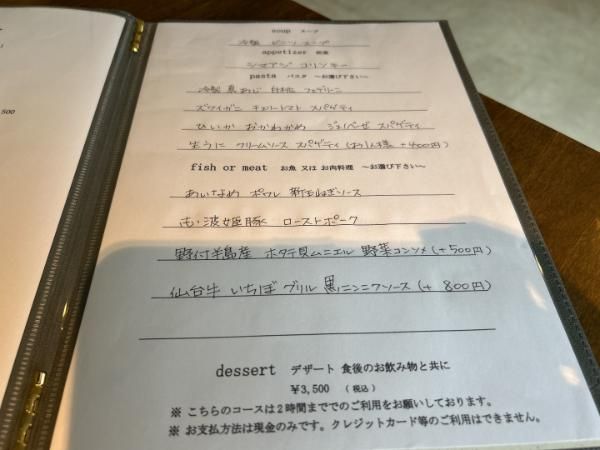 500
soup スープ
冷製 ビーツ スープ
appetizer 前菜
シマアジ コリンキー
pasta パスタ ～お選び下さい～
冷製 真あじ 白桃 フェデリーニ
ズワイガニ チェリートマト スパゲティ
ひいか おかわかめ ジェノベーゼ スパゲティ
生うに クリームソース スパゲティ (お1人様 +400円)
fish or meat お魚 又は お肉料理 ～お選び下さい～
あいなめ ポワレ 新玉ねぎソース
南の波姫豚 ローストポーク
野付半島産 ホタテ貝ムニエル 野菜コンソメ (+500円)
仙台牛 いちぼ グリル 黒ニンニクソース (+ 800円)
dessert デザート 食後のお飲み物と共に
¥3,500 (税込)
※ こちらのコースは2時間まででのご利用をお願いしております。
※ お支払方法は現金のみです。クレジットカード等のご利用はできません。